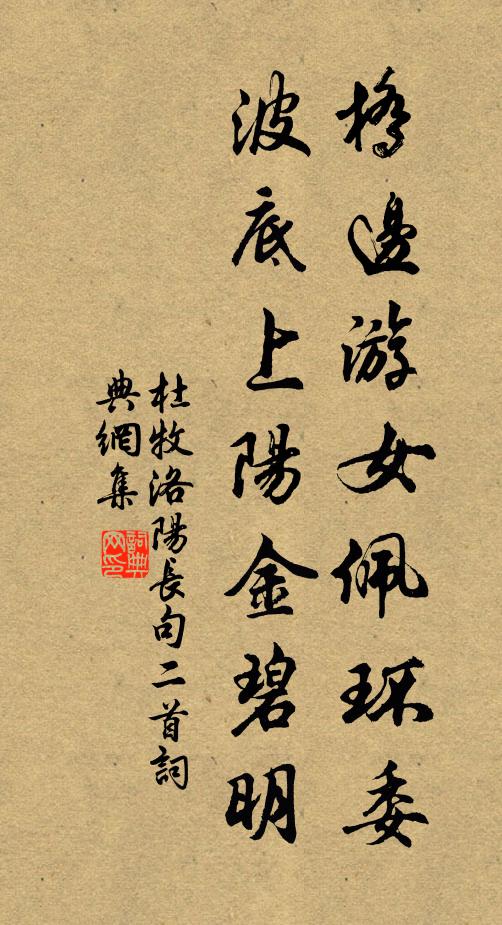 橋邊游女佩環委
波底上陽金碧明
杜牧洛陽長句二首詞
典網集
詞典
网印